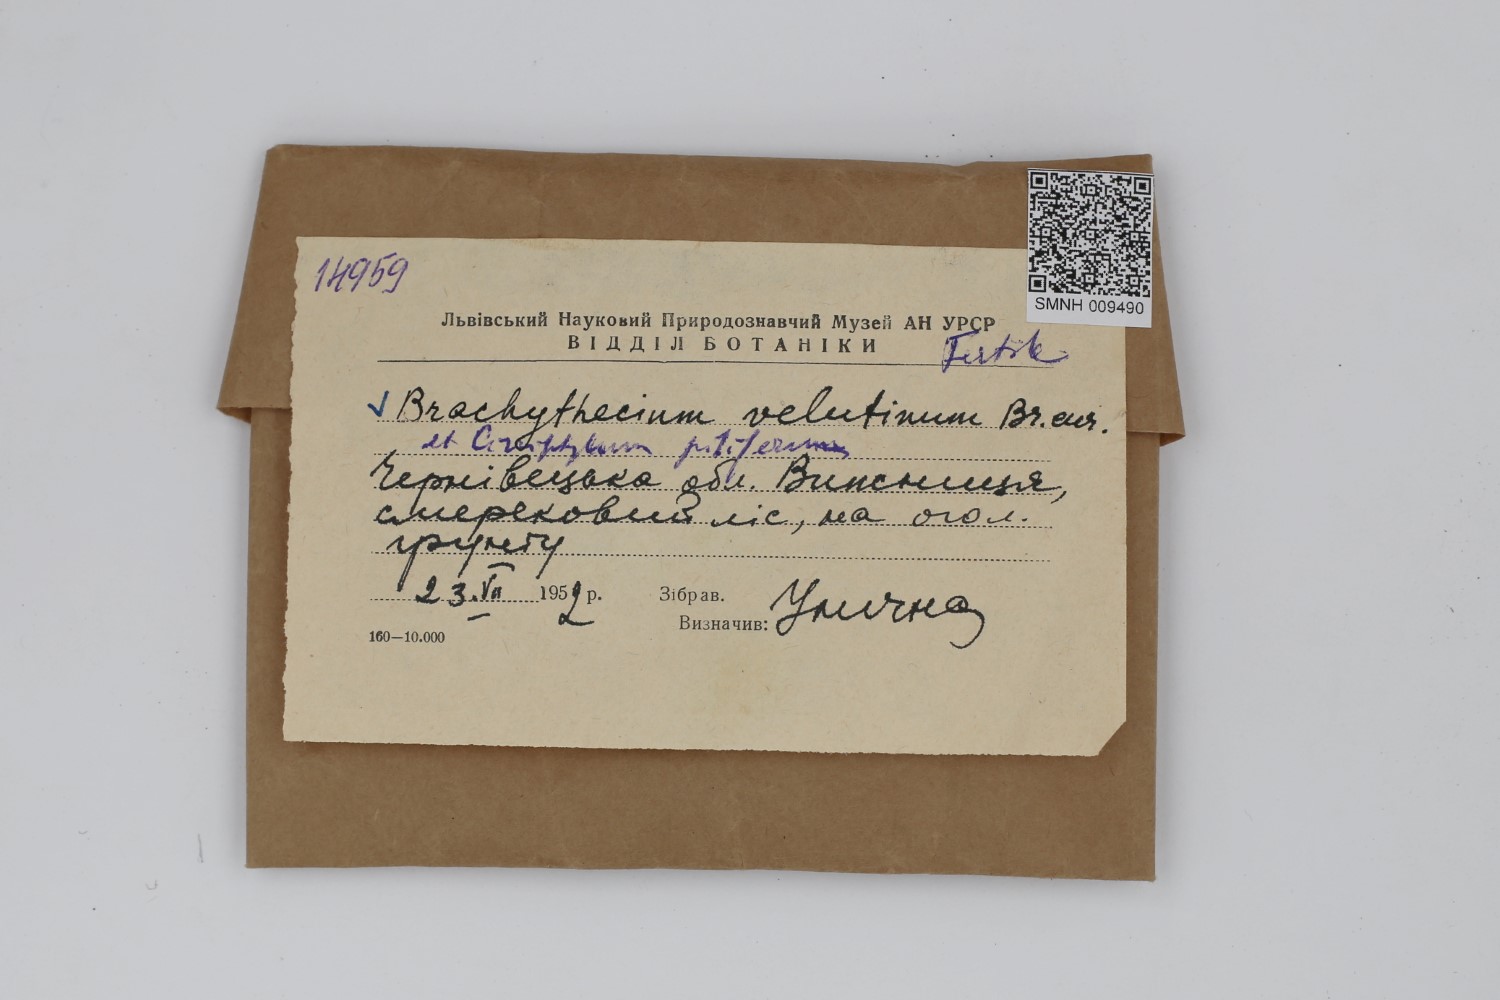 14959
SMNH 009490
Львівський Науковий Природознавчий Музей АН УРСР
ВІДДІЛ БОТАНІКИ
✓ Brachythecium velutinum Br. eur.
et Cirriphyllum piliferum
Чернівецька обл. Вижниця,
смерековий ліс, на огол.
ґрунту
23.VII 1952 р. Зібрав.
Визначив: Улична
160—10.000